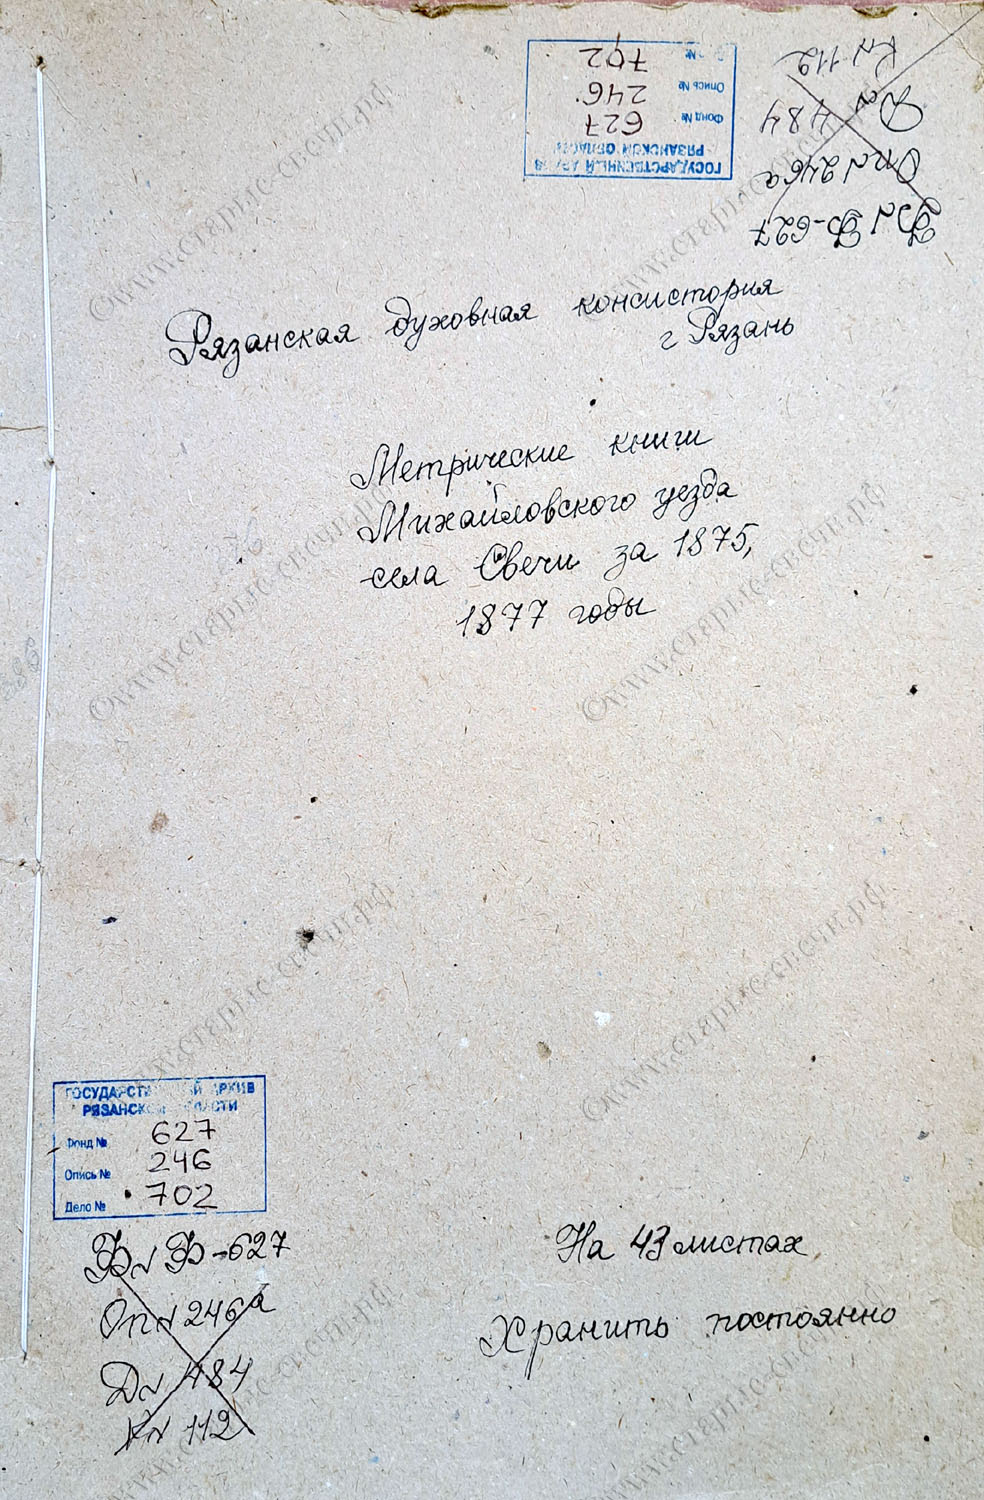 Кл 112
Д№ 484
Оп№ 246а
Ф№ Ф-627
Дело № 702
Опись № 246
Фонд № 627
ГОСУДАРСТВЕННЫЙ АРХИВ
РЯЗАНСКОЙ ОБЛАСТИ
Рязанская духовная консистория
г Рязань
Метрические книги
Михайловского уезда
села Свечи за 1875,
1877 годы
ГОСУДАРСТВЕННЫЙ АРХИВ
РЯЗАНСКОЙ ОБЛАСТИ
Фонд № 627
Опись № 246
Дело № 702
Ф№ Ф-627
Оп№ 246а
Д№ 484
К№ 112
На 43 листах
Хранить постоянно
©www.старые-свечи.рф